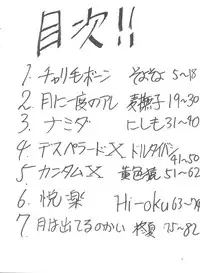 目次!!
1. チョリ毛ボーン そよそよ 5~18
2. 月に一度のアレ 麦撫子 19~30
3 ナミダ にしも 31~40
4. デスペラードX トルタイパン 41~50
5. カンタムX 黄色鏡 51~62
6. 悦楽 Hi-oku 63~74
7 月は出てるのかい 柊夏 75~82